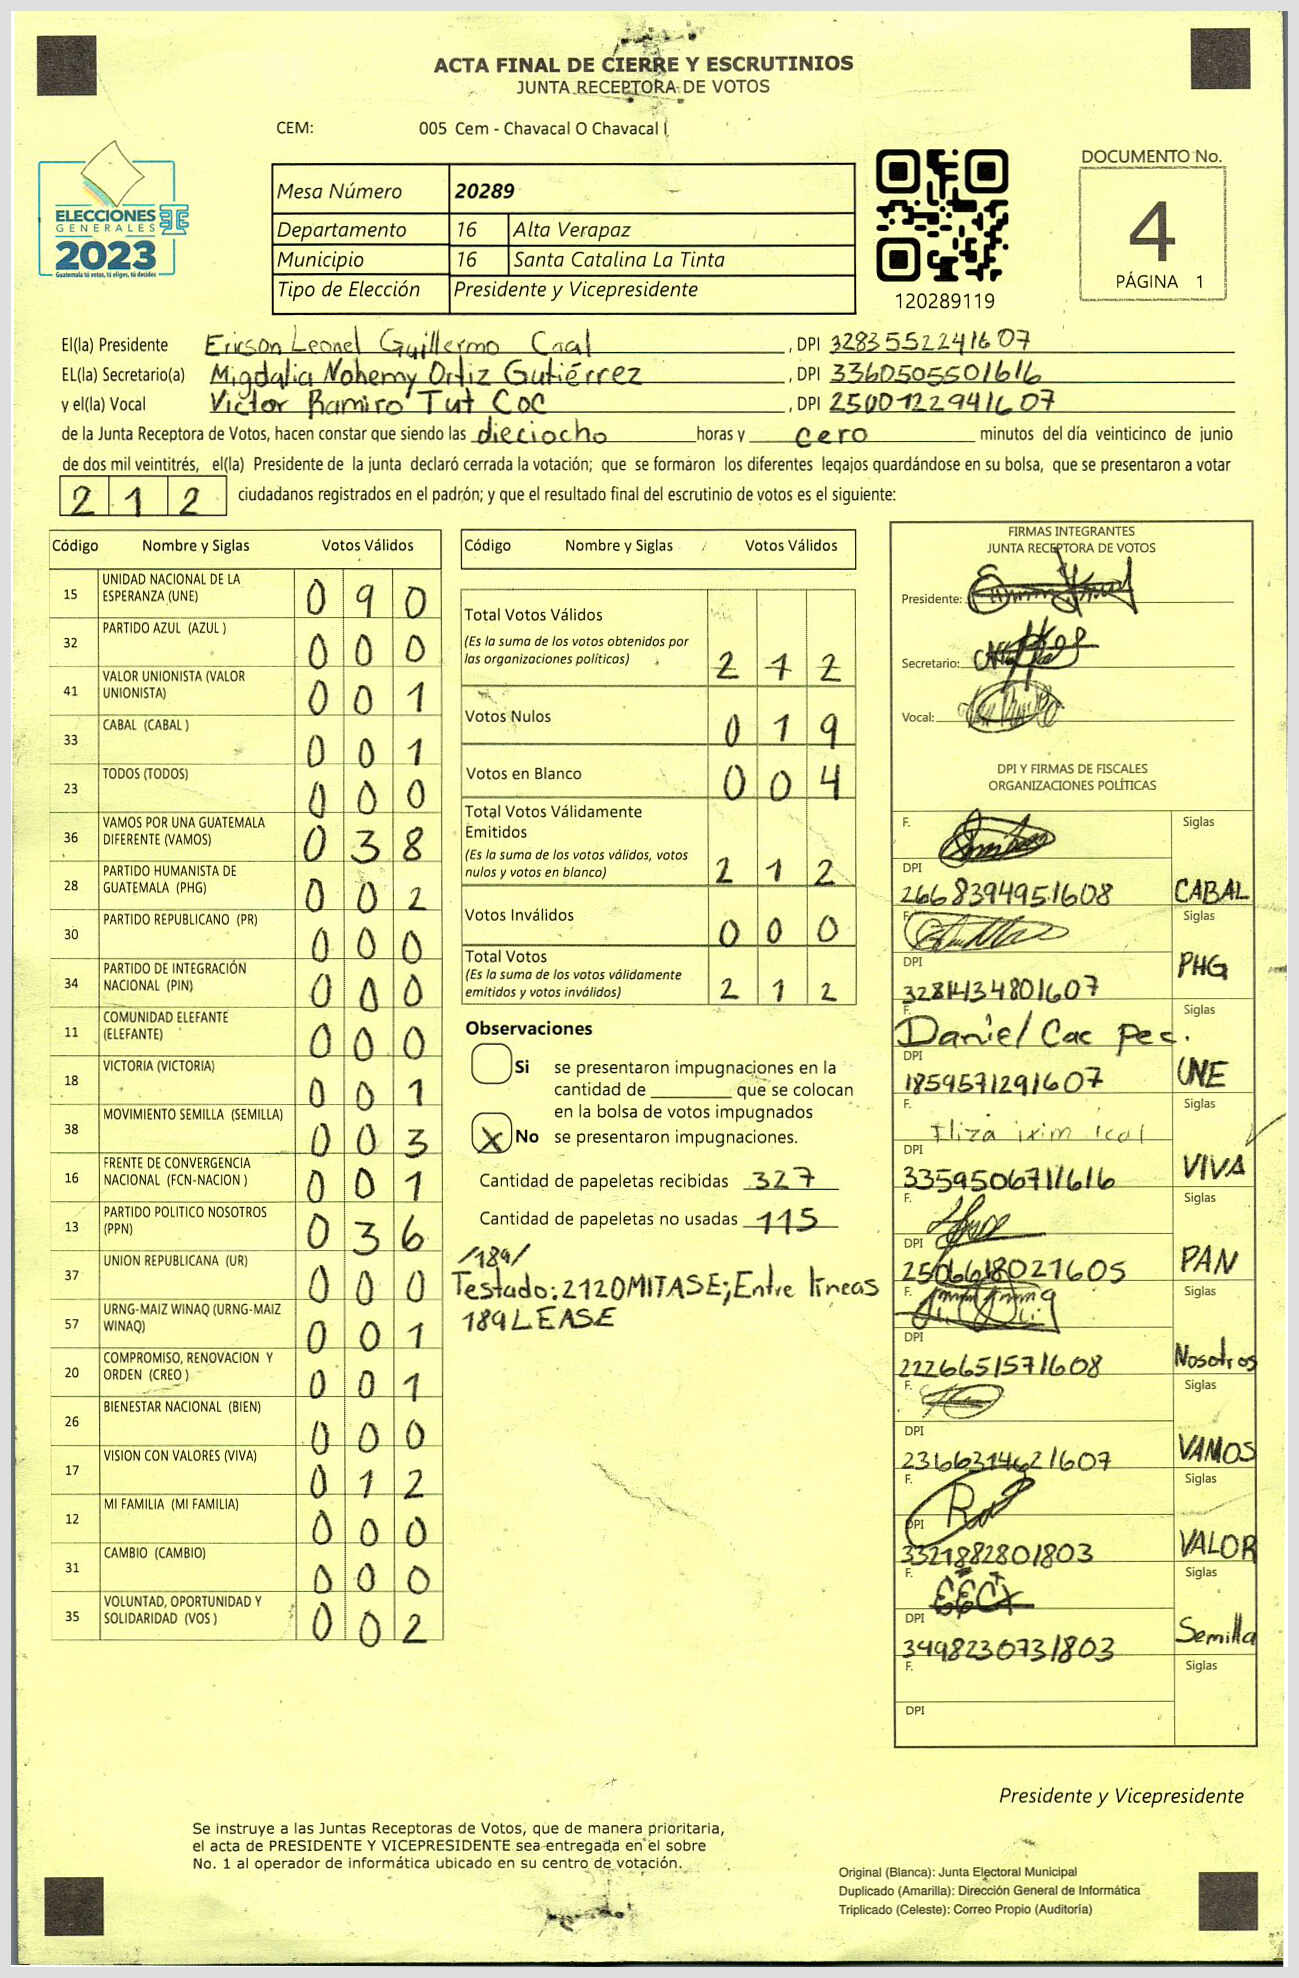 ACTA FINAL DE CIERRE Y ESCRUTINIOS
JUNTA RECEPTORA DE VOTOS
CEM: 005 Cem - Chavacal O Chavacal I
ELECCIONES
GENERALES
2023
Guatemala tú votas, tú eliges, tú decides
Mesa Número 20289
Departamento 16 Alta Verapaz
Municipio 16 Santa Catalina La Tinta
Tipo de Elección Presidente y Vicepresidente
120289119
DOCUMENTO No.
4
PÁGINA 1
El(la) Presidente Ericson Leonel Guillermo Caal, DPI 3283552241607
EL(la) Secretario(a) Migdalia Nohemy Ortiz Gutiérrez, DPI 3360505501616
y el(la) Vocal Victor Ramiro Tut Coc, DPI 2500122941607
de la Junta Receptora de Votos, hacen constar que siendo las dieciocho horas y cero minutos del día veinticinco de junio
de dos mil veintitrés, el(la) Presidente de la junta declaró cerrada la votación; que se formaron los diferentes legajos guardándose en su bolsa, que se presentaron a votar
212 ciudadanos registrados en el padrón; y que el resultado final del escrutinio de votos es el siguiente:
Código Nombre y Siglas Votos Válidos
15 UNIDAD NACIONAL DE LA ESPERANZA (UNE) 090
32 PARTIDO AZUL (AZUL ) 000
41 VALOR UNIONISTA (VALOR UNIONISTA) 001
33 CABAL (CABAL ) 001
23 TODOS (TODOS) 000
36 VAMOS POR UNA GUATEMALA DIFERENTE (VAMOS) 038
28 PARTIDO HUMANISTA DE GUATEMALA (PHG) 002
30 PARTIDO REPUBLICANO (PR) 000
34 PARTIDO DE INTEGRACIÓN NACIONAL (PIN) 000
11 COMUNIDAD ELEFANTE (ELEFANTE) 000
18 VICTORIA (VICTORIA) 001
38 MOVIMIENTO SEMILLA (SEMILLA) 003
16 FRENTE DE CONVERGENCIA NACIONAL (FCN-NACION ) 001
13 PARTIDO POLITICO NOSOTROS (PPN) 036
37 UNION REPUBLICANA (UR) 000
57 URNG-MAIZ WINAQ (URNG-MAIZ WINAQ) 001
20 COMPROMISO, RENOVACION Y ORDEN (CREO ) 001
26 BIENESTAR NACIONAL (BIEN) 000
17 VISION CON VALORES (VIVA) 012
12 MI FAMILIA (MI FAMILIA) 000
31 CAMBIO (CAMBIO) 000
35 VOLUNTAD, OPORTUNIDAD Y SOLIDARIDAD (VOS ) 002
Código Nombre y Siglas Votos Válidos
Total Votos Válidos
(Es la suma de los votos obtenidos por
las organizaciones políticas) 212
Votos Nulos 019
Votos en Blanco 004
Total Votos Válidamente
Emitidos
(Es la suma de los votos válidos, votos
nulos y votos en blanco) 212
Votos Inválidos 000
Total Votos
(Es la suma de los votos válidamente
emitidos y votos inválidos) 212
Observaciones
Si se presentaron impugnaciones en la
cantidad de ________ que se colocan
en la bolsa de votos impugnados
X No se presentaron impugnaciones.
Cantidad de papeletas recibidas 327
Cantidad de papeletas no usadas 115
/189/
Testado: 212OMITASE; Entre líneas
189 LEASE
FIRMAS INTEGRANTES
JUNTA RECEPTORA DE VOTOS
Presidente:
Secretario:
Vocal:
DPI Y FIRMAS DE FISCALES
ORGANIZACIONES POLÍTICAS
F. Siglas
DPI
2668394951608 CABAL
F. Siglas
DPI
3281434801607 PHG
F. Siglas
Daniel Cac Pec.
DPI
1859571291607 UNE
F. Siglas
DPI
3359506711616 VIVA
F. Siglas
DPI
2506618021605 PAN
F. Siglas
DPI
2226651571608 Nosotros
F. Siglas
DPI
2366314621607 VAMOS
F. Siglas
DPI
3321882801803 VALOR
F. Siglas
DPI
3498230731803 Semilla
F. Siglas
DPI
Presidente y Vicepresidente
Se instruye a las Juntas Receptoras de Votos, que de manera prioritaria,
el acta de PRESIDENTE Y VICEPRESIDENTE sea entregada en el sobre
No. 1 al operador de informática ubicado en su centro de votación.
Original (Blanca): Junta Electoral Municipal
Duplicado (Amarilla): Dirección General de Informática
Triplicado (Celeste): Correo Propio (Auditoría)